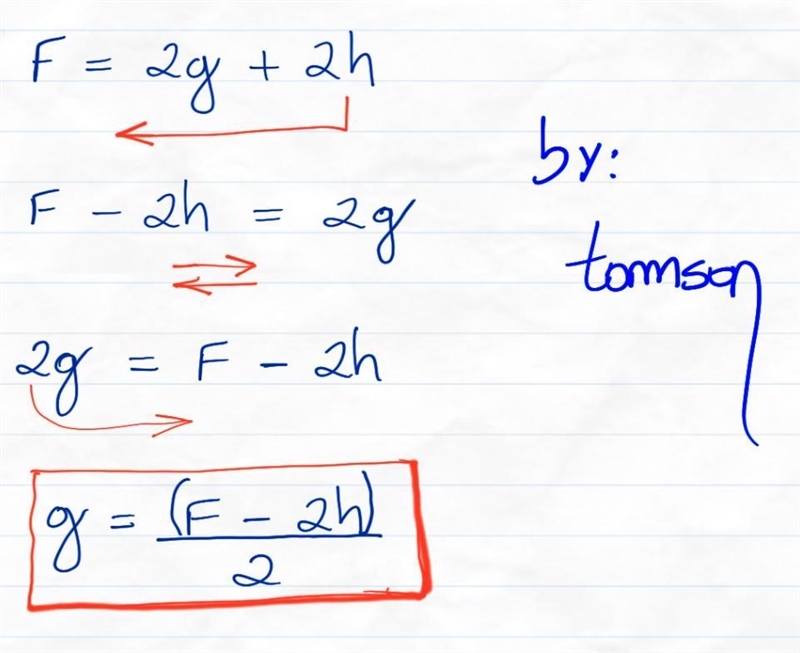 F = 2g + 2h
F - 2h = 2g
2g = F - 2h
g = (F - 2h)
2
by:
tomson